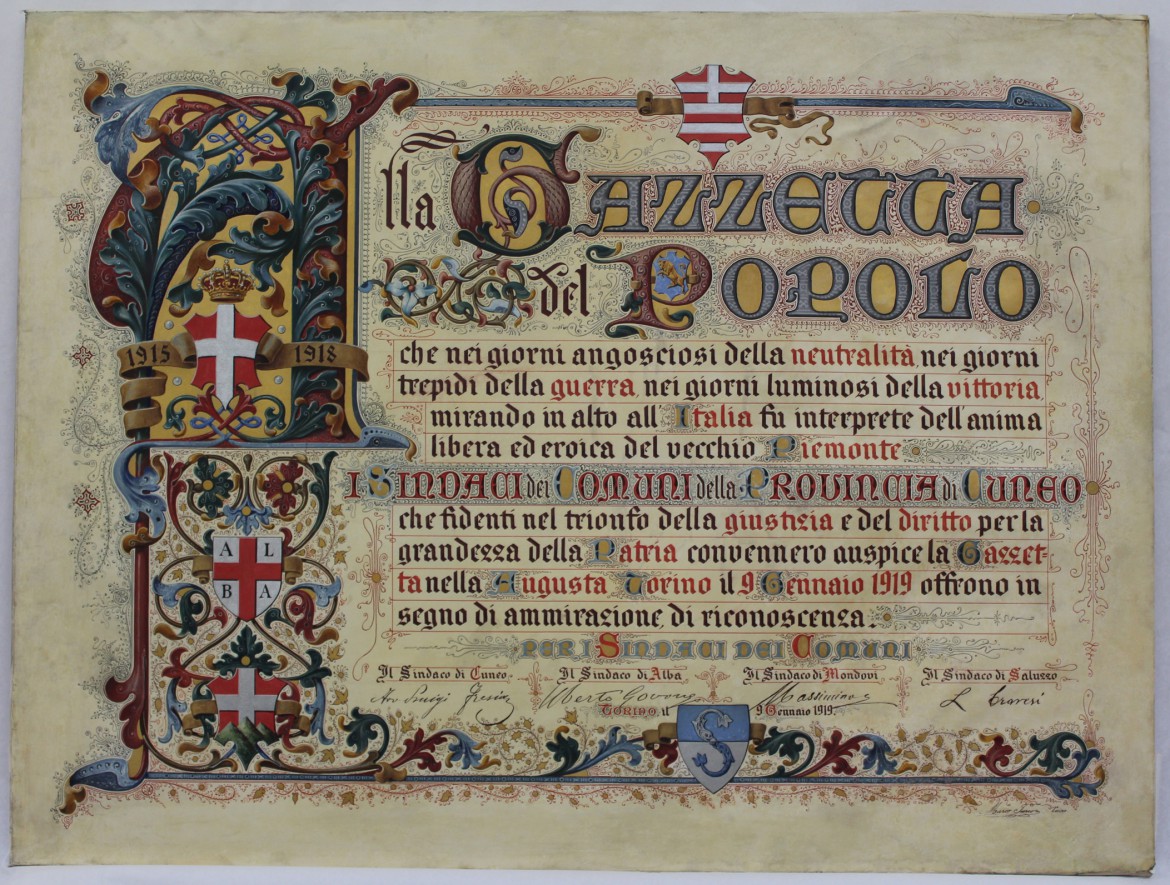 Alla GAZZETTA
del POPOLO
1915 1918
che nei giorni angosciosi della neutralità, nei giorni
trepidi della guerra, nei giorni luminosi della vittoria,
mirando in alto all'Italia fu interprete dell'anima
libera ed eroica del vecchio Piemonte
I SINDACI dei COMUNI della PROVINCIA di CUNEO
che fidenti nel trionfo della giustizia e del diritto per la
grandezza della Patria convennero auspice la Gazzet-
ta nella Augusta Torino il 9 Gennaio 1919 offrono in
segno di ammirazione, di riconoscenza.
A L
B A
PER I SINDACI DEI COMUNI
Il Sindaco di Cuneo Il Sindaco di Alba Il Sindaco di Mondovì Il Sindaco di Saluzzo
Av. Luigi Fresia Alberto Massimino L.
TORINO, il 9 Gennaio 1919.
S